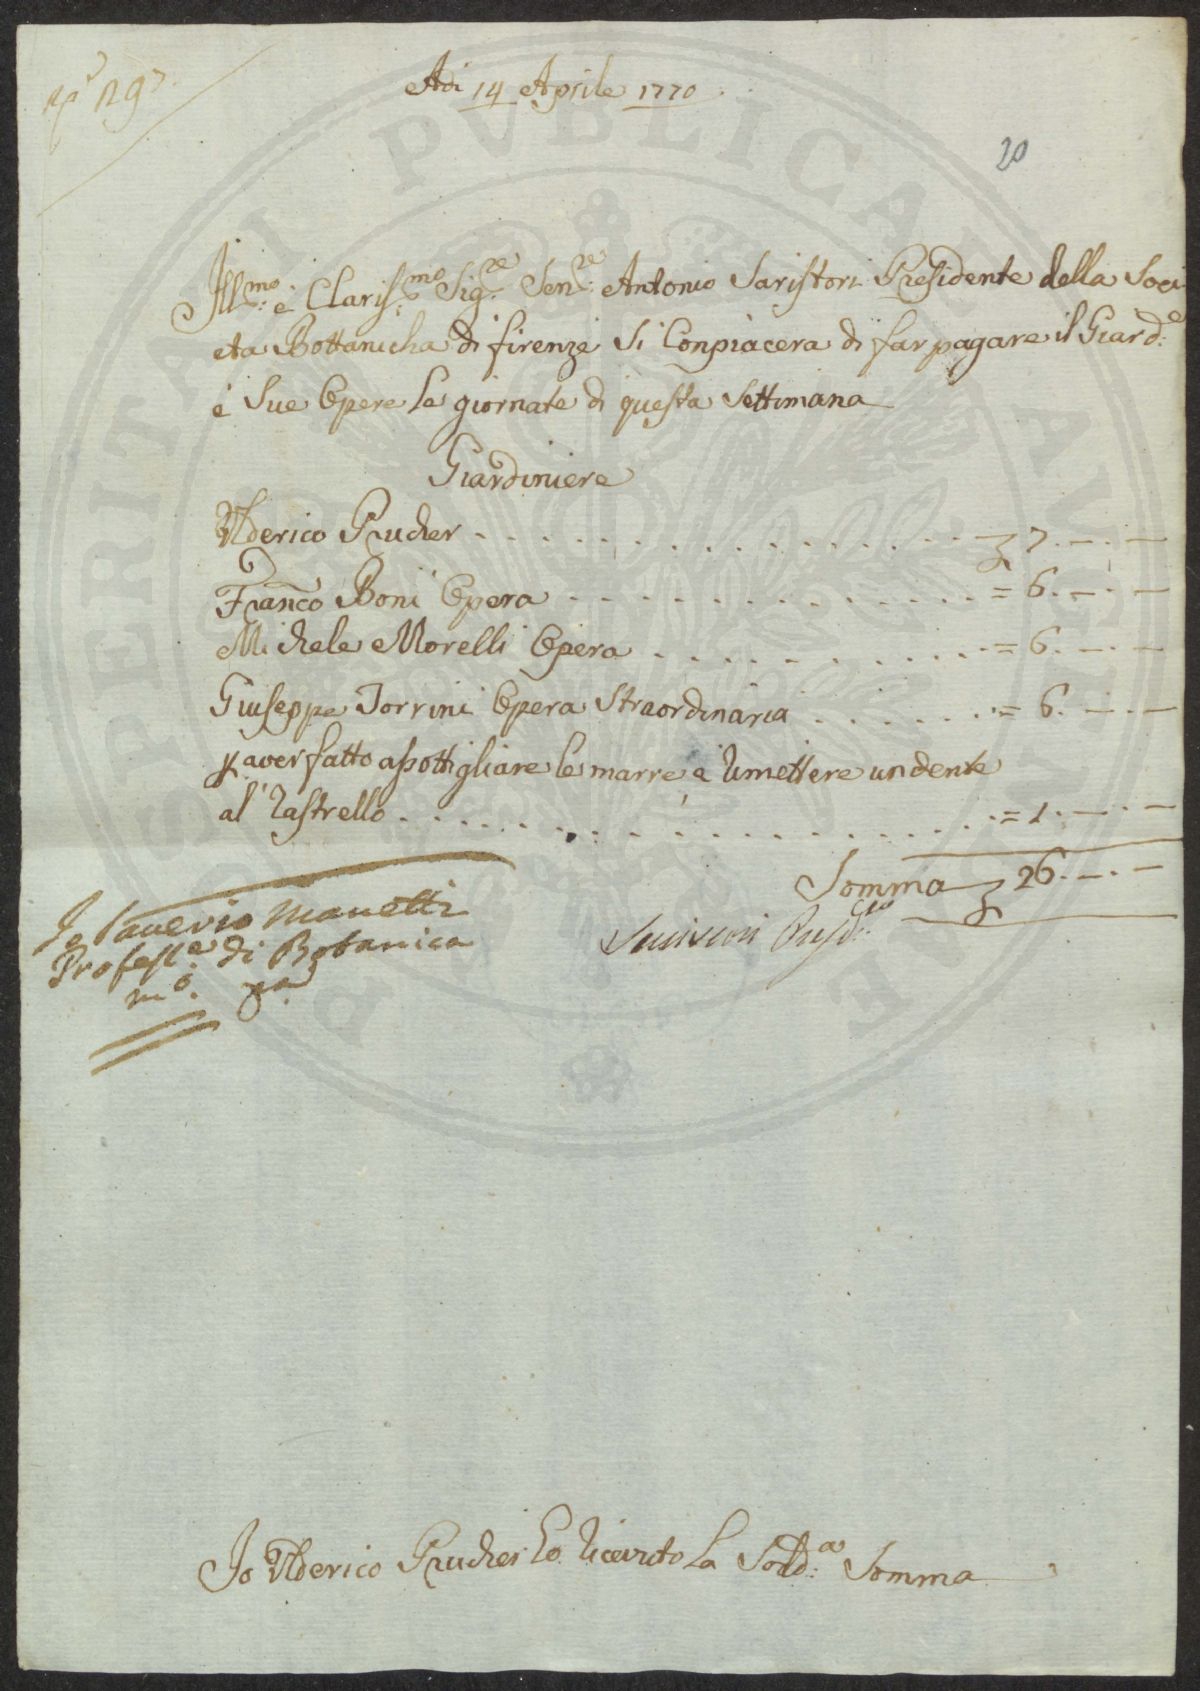 Adi 14 Aprile 1770
20
Ill.mo e Clariss.mo Sig.re Sen.re Antonio Saristori Presidente della Soci
eta Bottanicha di firenze Si Conpiacera di far pagare il Giard.e
e Sue Opere le giornate di questa Settimana
Giardiniere
Ulderico Prucher . . . . . . . . . . . . . 7. — . —
Franco Boni Opera . . . . . . . . . . . . = 6. — . —
Michele Morelli Opera . . . . . . . . . = 6. — . —
Giuseppe Torrini Opera Straordinaria . . . . . . = 6. — . —
p aver fatto assottigliare le marre, a rimettere un dente
al rastrello . . . . . . . . . . . . . . = 1. — . —
Somma 26. — . —
Io Saverio Manetti
Profess.e di Botanica
m.o p.a
Io Ulderico Prucher ho riceuto la Sodd.a Somma
PROSPERITATI PVBLICAE AVGENDAE